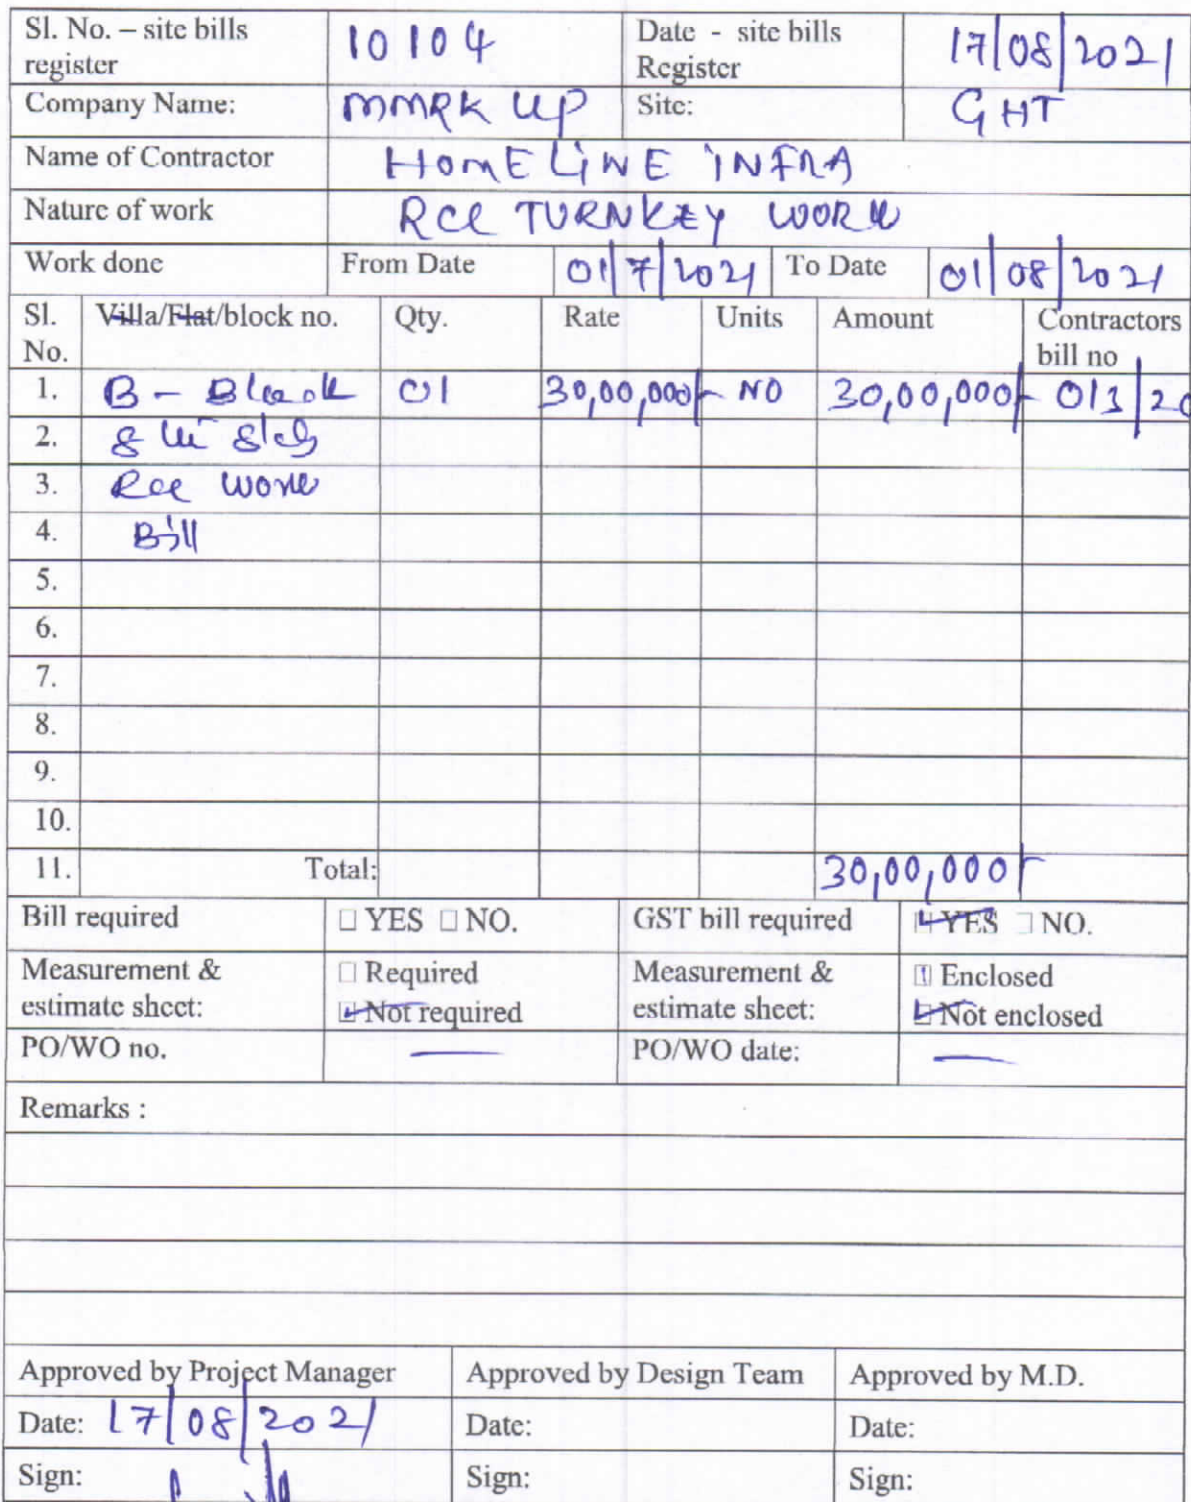 Sl. No. – site bills register 10104 Date - site bills Register 17/08/2021
Company Name: MMRK UP Site: GHT
Name of Contractor HOMELINE INFRA
Nature of work RCC TURNKEY WORK
Work done From Date 01/7/2021 To Date 01/08/2021
Sl. No. Villa/Flat/block no. Qty. Rate Units Amount Contractors bill no
1. B - Block 01 30,00,000/- NO 30,00,000/- 013/20
2. slab
3. RCC work
4. Bill
5.
6.
7.
8.
9.
10.
11. Total: 30,00,000/-
Bill required □ YES □ NO. GST bill required ☑ YES □ NO.
Measurement & estimate sheet: □ Required ☑ Not required Measurement & estimate sheet: □ Enclosed ☑ Not enclosed
PO/WO no. — PO/WO date: —
Remarks :
Approved by Project Manager Approved by Design Team Approved by M.D.
Date: 17/08/2021 Date: Date:
Sign: Sign: Sign: